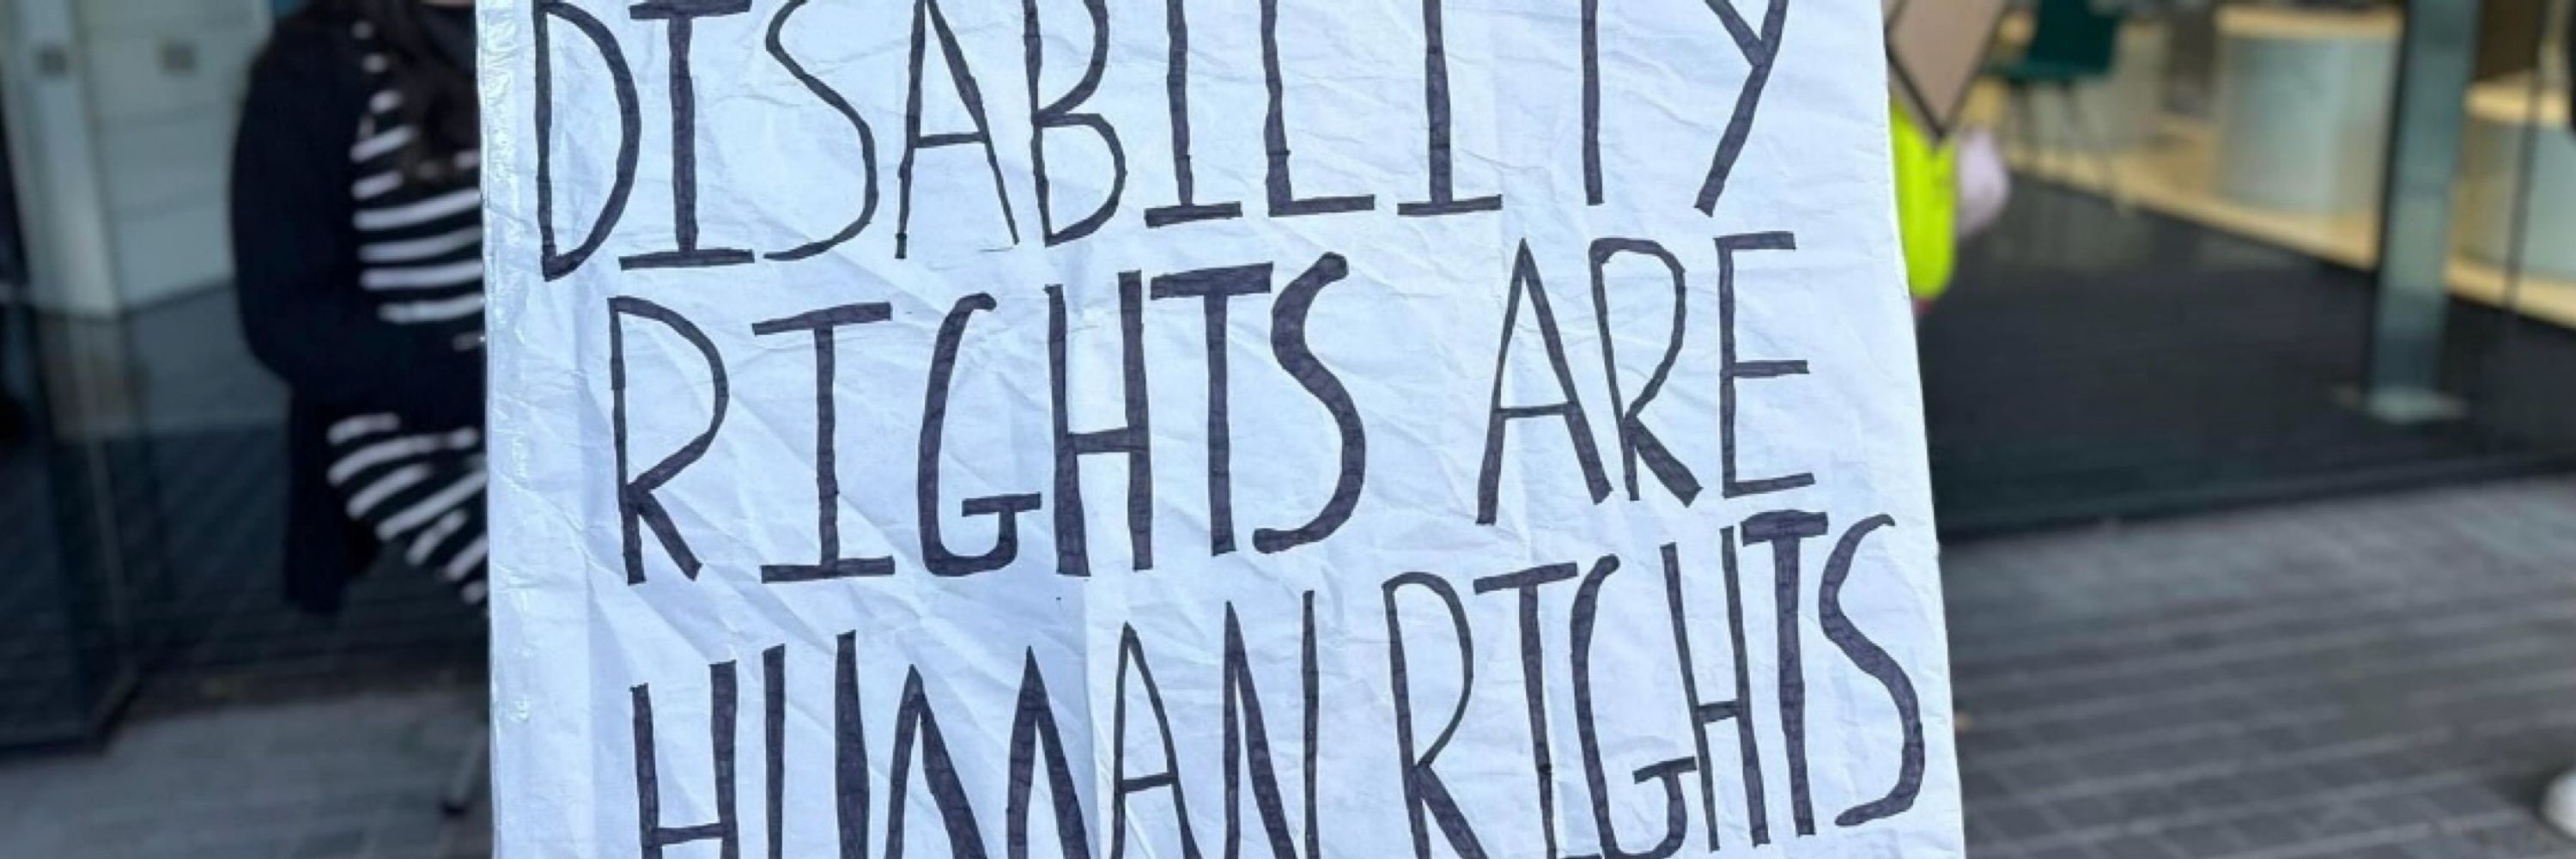 DISABILITY
RIGHTS ARE
HUMAN RIGHTS